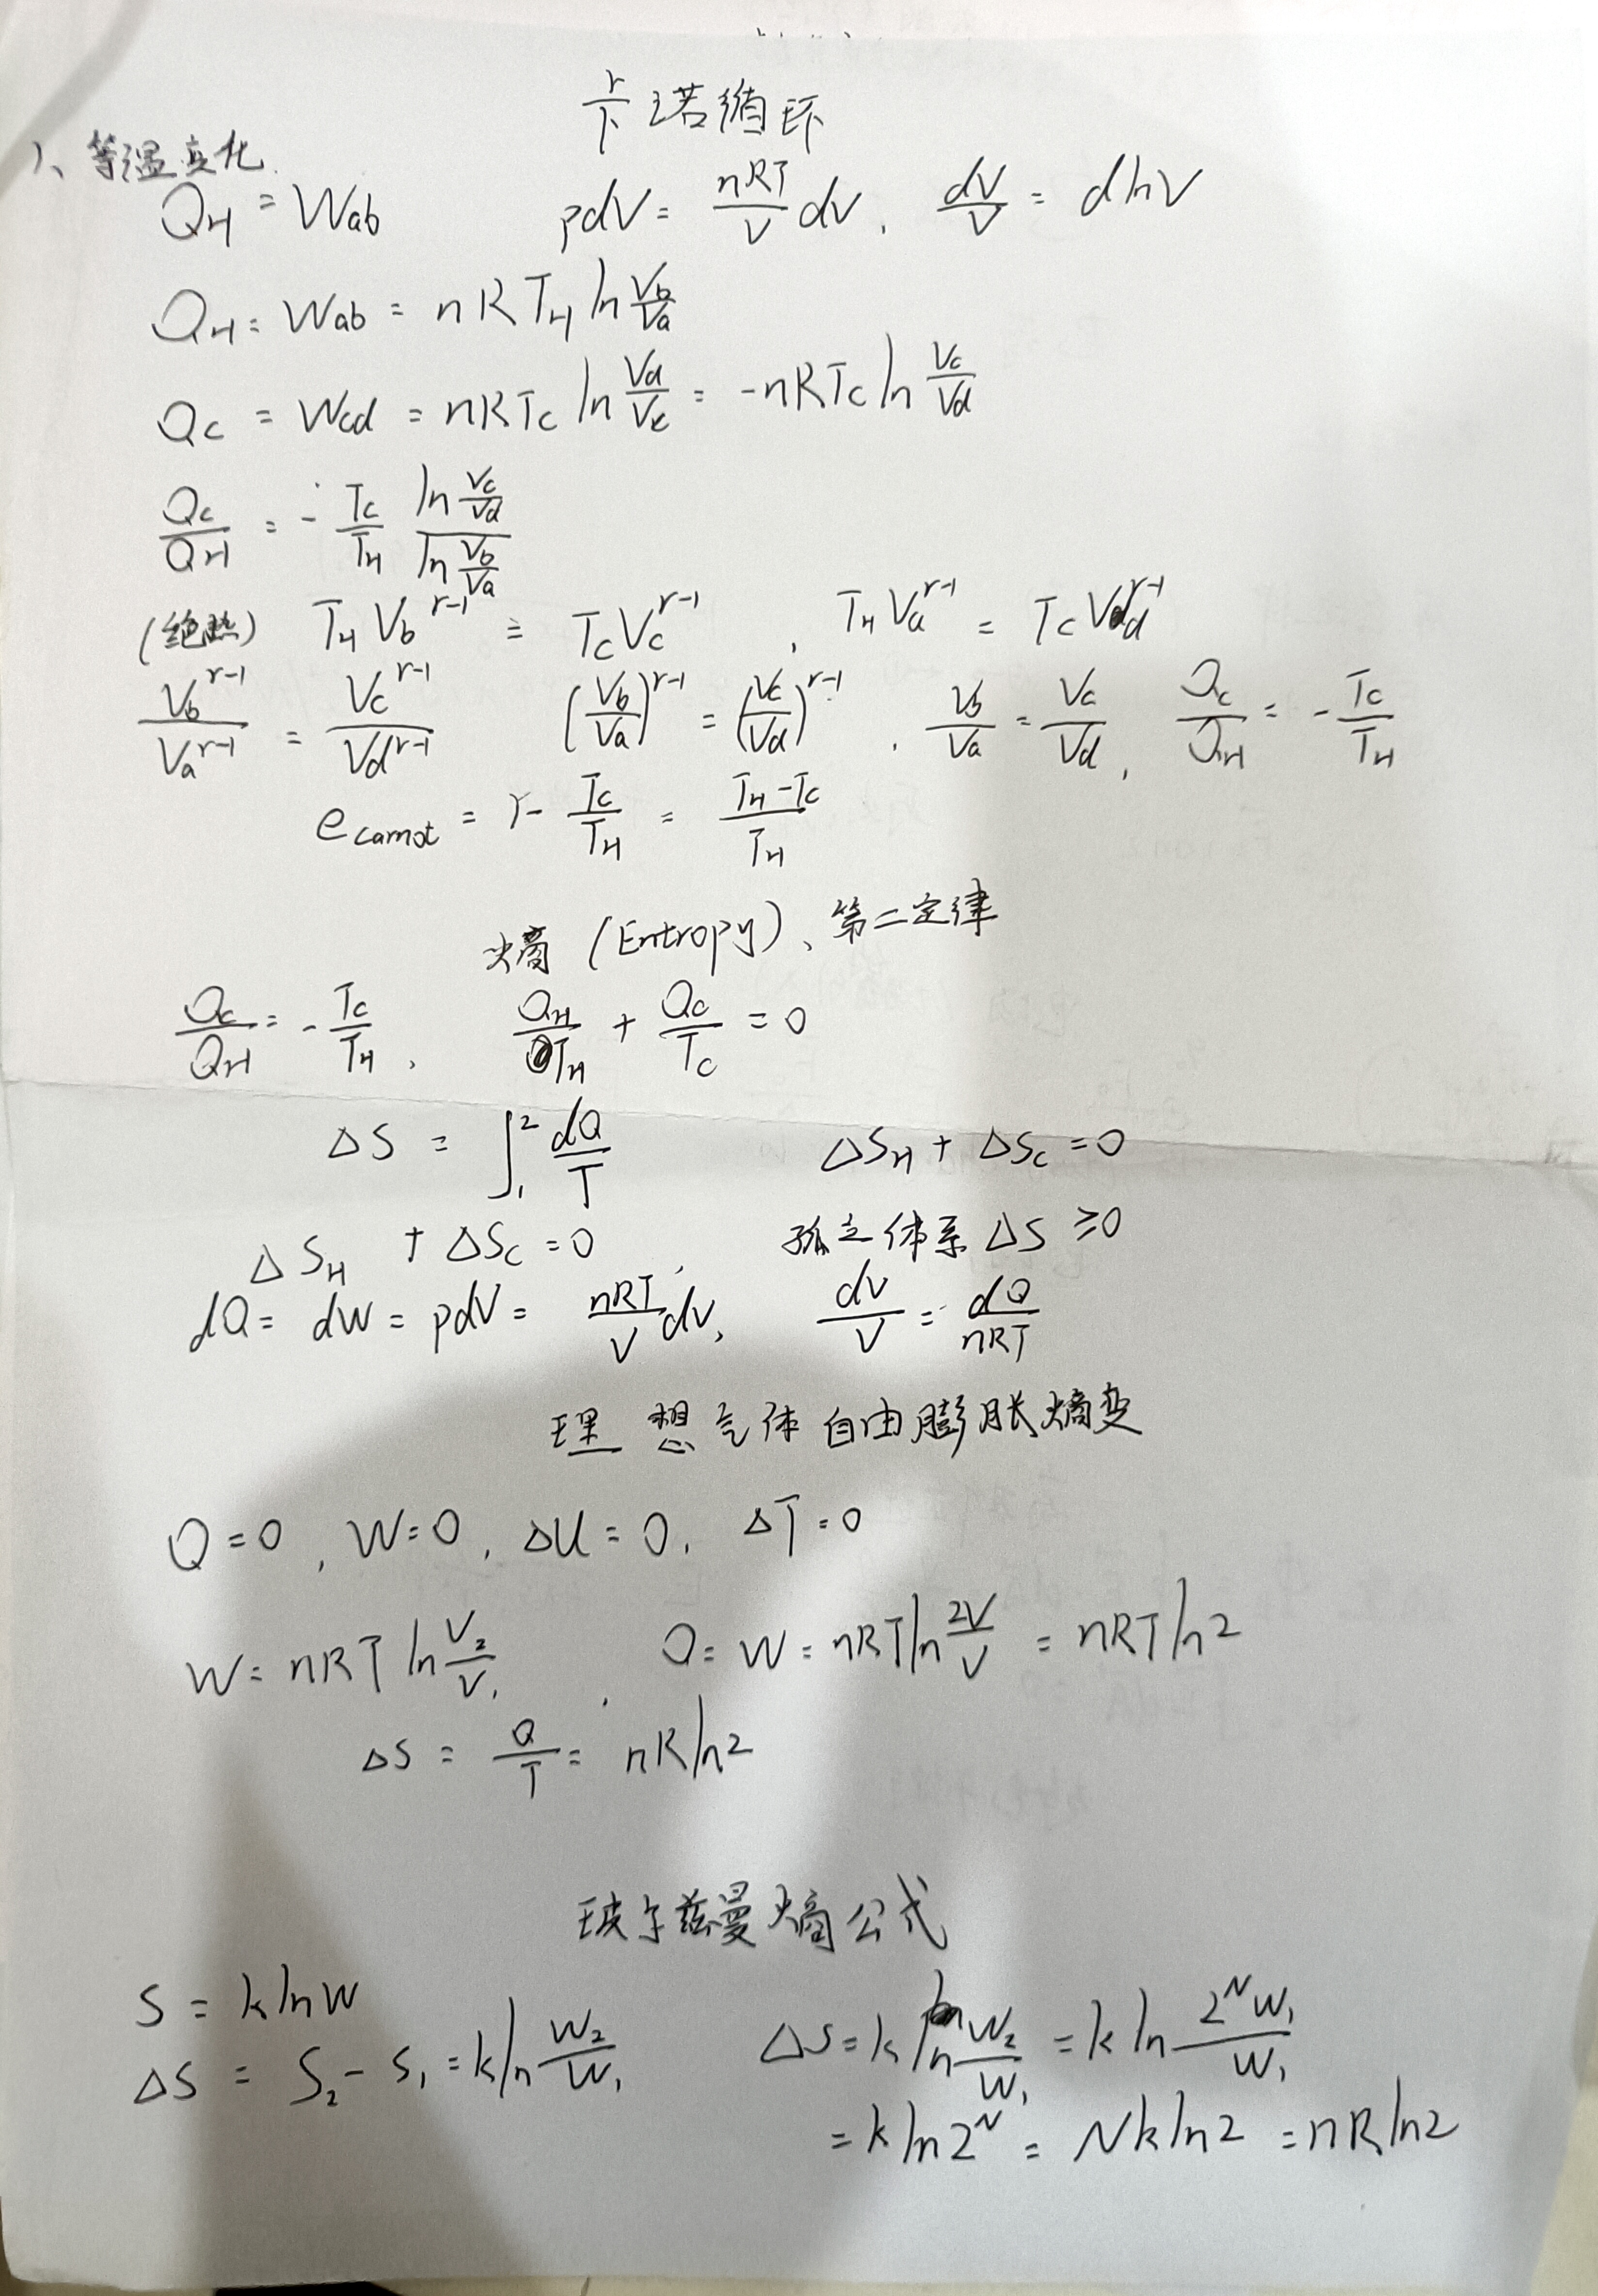 卡诺循环
1、等温变化
Q_H = W_ab   pdV = \frac{nRT}{V} dV, \frac{dV}{V} = dlnV
Q_H = W_ab = nRT_H ln\frac{V_b}{V_a}
Q_C = W_cd = nRT_C ln\frac{V_d}{V_c} = -nRT_C ln\frac{V_c}{V_d}
\frac{Q_C}{Q_H} = -\frac{T_C}{T_H} \frac{ln\frac{V_c}{V_d}}{ln\frac{V_b}{V_a}}
(绝热) T_H V_b^{r-1} = T_C V_c^{r-1}, T_H V_a^{r-1} = T_C V_d^{r-1}
\frac{V_b^{r-1}}{V_a^{r-1}} = \frac{V_c^{r-1}}{V_d^{r-1}}   (\frac{V_b}{V_a})^{r-1} = (\frac{V_c}{V_d})^{r-1}, \frac{V_b}{V_a} = \frac{V_c}{V_d}, \frac{Q_C}{Q_H} = -\frac{T_C}{T_H}
e_carnot = 1 - \frac{T_C}{T_H} = \frac{T_H - T_C}{T_H}
熵 (Entropy)、第二定律
\frac{Q_C}{Q_H} = -\frac{T_C}{T_H}, \frac{Q_H}{T_H} + \frac{Q_C}{T_C} = 0
ΔS = ∫_1^2 \frac{dQ}{T}   ΔS_H + ΔS_C = 0
ΔS_H + ΔS_C = 0, 孤立体系 ΔS ≥ 0
dQ = dW = pdV = \frac{nRT}{V} dV, \frac{dV}{V} = \frac{dQ}{nRT}
理想气体自由膨胀熵变
Q = 0, W = 0, ΔU = 0, ΔT = 0
W = nRT ln\frac{V_2}{V_1}, Q = W = nRT ln\frac{2V}{V} = nRT ln2
ΔS = \frac{Q}{T} = nR ln2
玻尔兹曼熵公式
S = k lnW
ΔS = S_2 - S_1 = k ln\frac{W_2}{W_1}   ΔS = k ln\frac{W_2}{W_1} = k ln\frac{2^N W_1}{W_1}
= k ln2^N = Nk ln2 = nR ln2